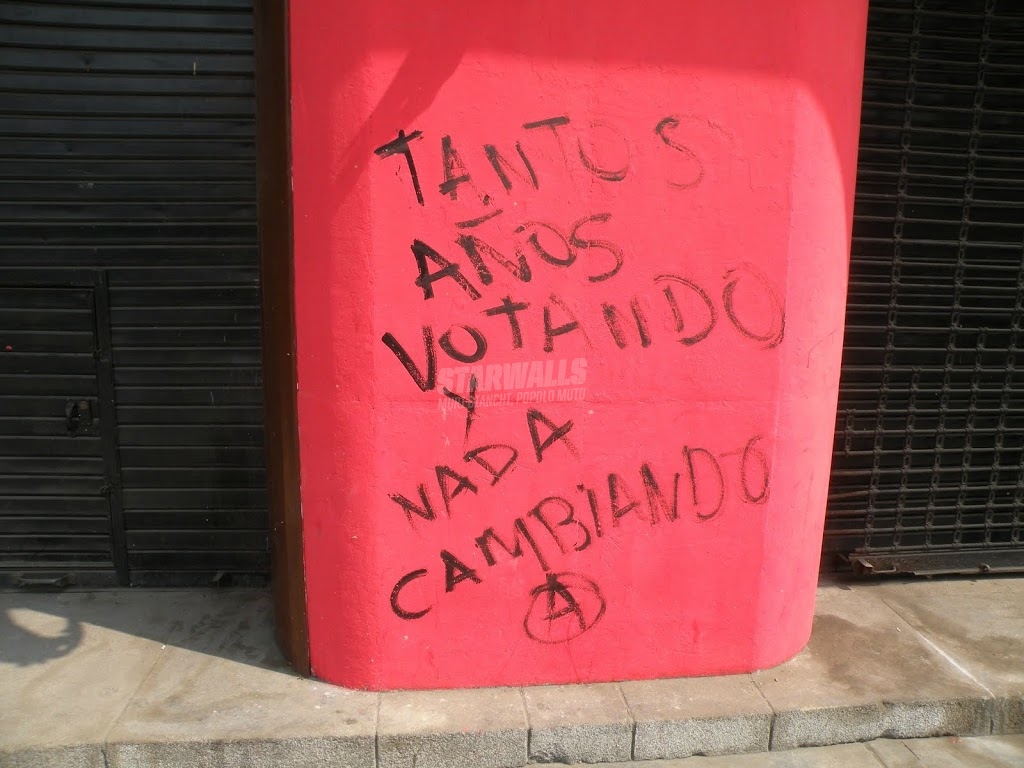 TANTOS
AÑOS
VOTANDO
STARWALLS
MURI BIANCHI, POPOLO MUTO
Y
NADA
CAMBIANDO
A